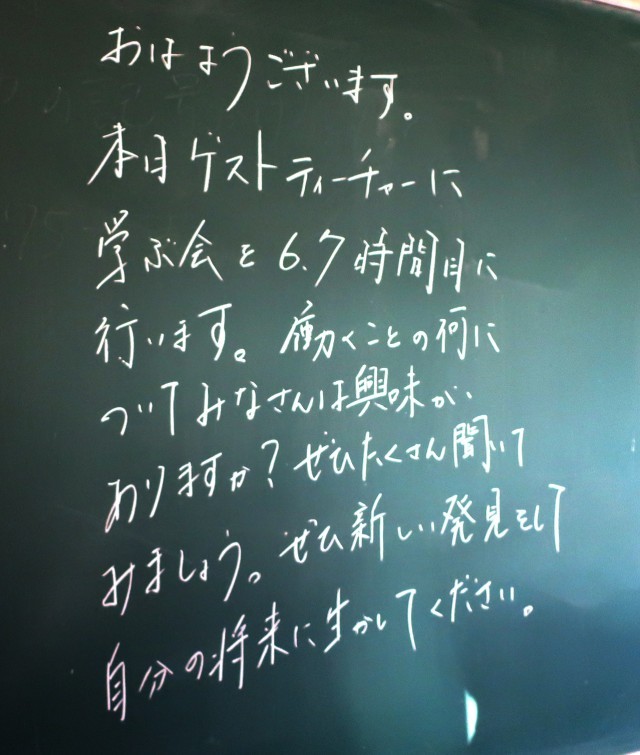 おはようございます。
本日ゲストティーチャーに
学ぶ会を6.7時間目に
行います。働くことの何に
ついてみなさんは興味が
ありますか?ぜひたくさん聞いて
みましょう。ぜひ新しい発見をして
自分の将来に生かしてください。